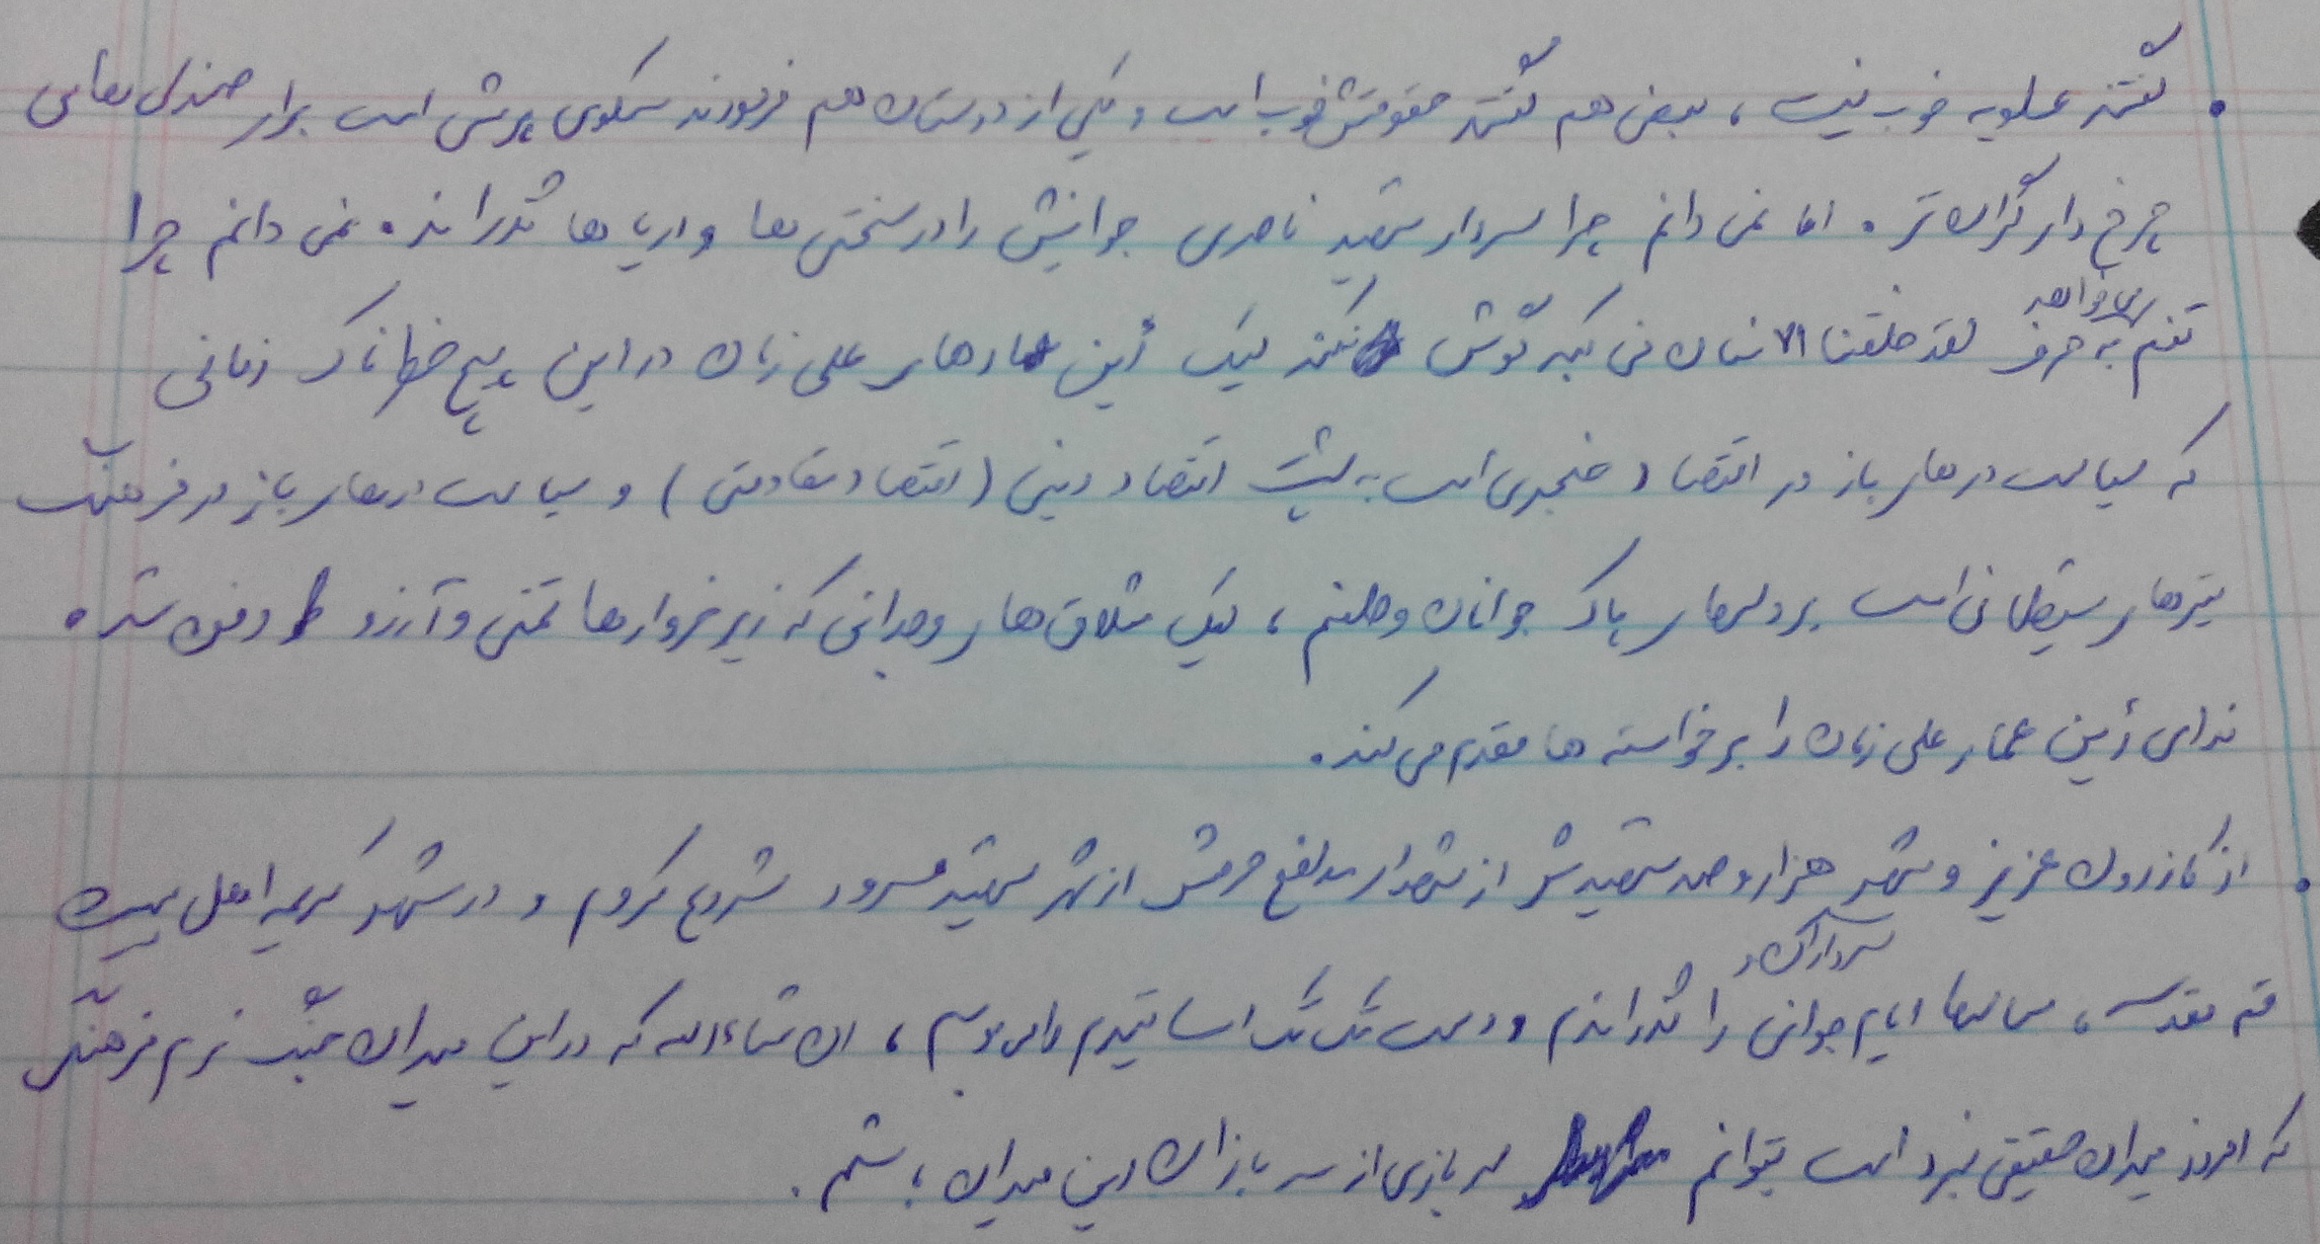 • گفتند عسلویه خوب نیست ، بعضی هم گفتند حقوقش خوب است و یکی از دوستان هم فرمودند سکوی پرش است برای صندلی هایی
چرخ دار گران تر . اما نمی دانم چرا سردار شهید ناصری جوانیش را در سختی ها و دریا ها گذراند . نمی دانم چرا
نمی خواهد
تنم به حرف لقد خلقنا الانسان فی کبد گوش کند لیک أین عمارهای علی زمان در این پیچ خطرناک زمانی
که سیاست درهای باز در اقتصاد خنجری است به پشت اقتصاد دینی (اقتصاد مقاومتی) و سیاست درهای باز در فرهنگ
تیرهای شیطانی است بر دلهای پاک جوانان وطنم ، لیک شلاق های وجدانی که زیر خروارها تمنی و آرزو دفن شده
ندای أین عمار علی زمان را بر خواسته ها مقدم می کند .
• از کازرون عزیز و شهر هزار و صد شهیدش از شهدای مدافع حرمش از شهر شهید شروع کردم و در شهر کریمه اهل بیت
قم مقدسه ، سالها ایام جوانی را گذراندم و دست تک تک اساتیدم را می بوسم ، ان شاءالله که در این میدان جنگ نرم فرهنگی
که امروز میدان حقیقی نبرد است بتوانم سربازی از سربازان این میدان باشم .